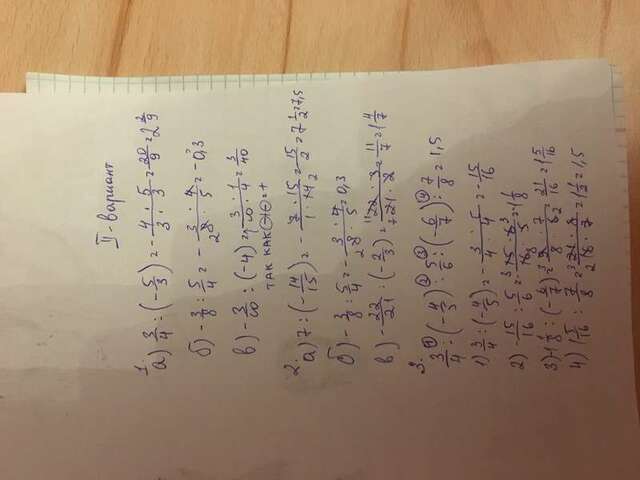 II - вариант
1. а) 3/4 : (-5/3) = - 4 · 5 / 3 · 3 = 20/9 = 2 2/9
б) - 3/8 : 5/4 = - 3 · 4 / 2 8 · 5 = -0,3
в) - 3/10 : (-4) = 3 · 1 / 10 · 4 = 3/40
так как ⊖⊖ = +
2. а) 7 : (-14/15) = - 7 · 15 / 1 · 14 2 = 15/2 = 7 1/2 = 7,5
б) - 3/8 : 5/4 = - 3 · 4 / 2 8 · 5 = 0,3
в) - 22/21 : (-2/3) = 11 22 · 3 / 7 21 · 2 = 11/7 = 1 4/7
3.
3/4 : ① (-4/5) : ② 5/6 : ③ (-6/7) : ④ 7/8 = 1,5
1) 3/4 : (-4/5) = - 3 · 5 / 4 · 4 = - 15/16
2) - 15/16 : 5/6 = 3 15 · 6 3 / 16 8 · 5 = -1 1/8
3) -1 1/8 : (-6/7) = 3 9 · 7 / 8 · 6 2 = 21/16 = 1 5/16
4) 1 5/16 : 7/8 = 3 21 · 8 / 2 16 · 7 = 1 1/2 = 1,5